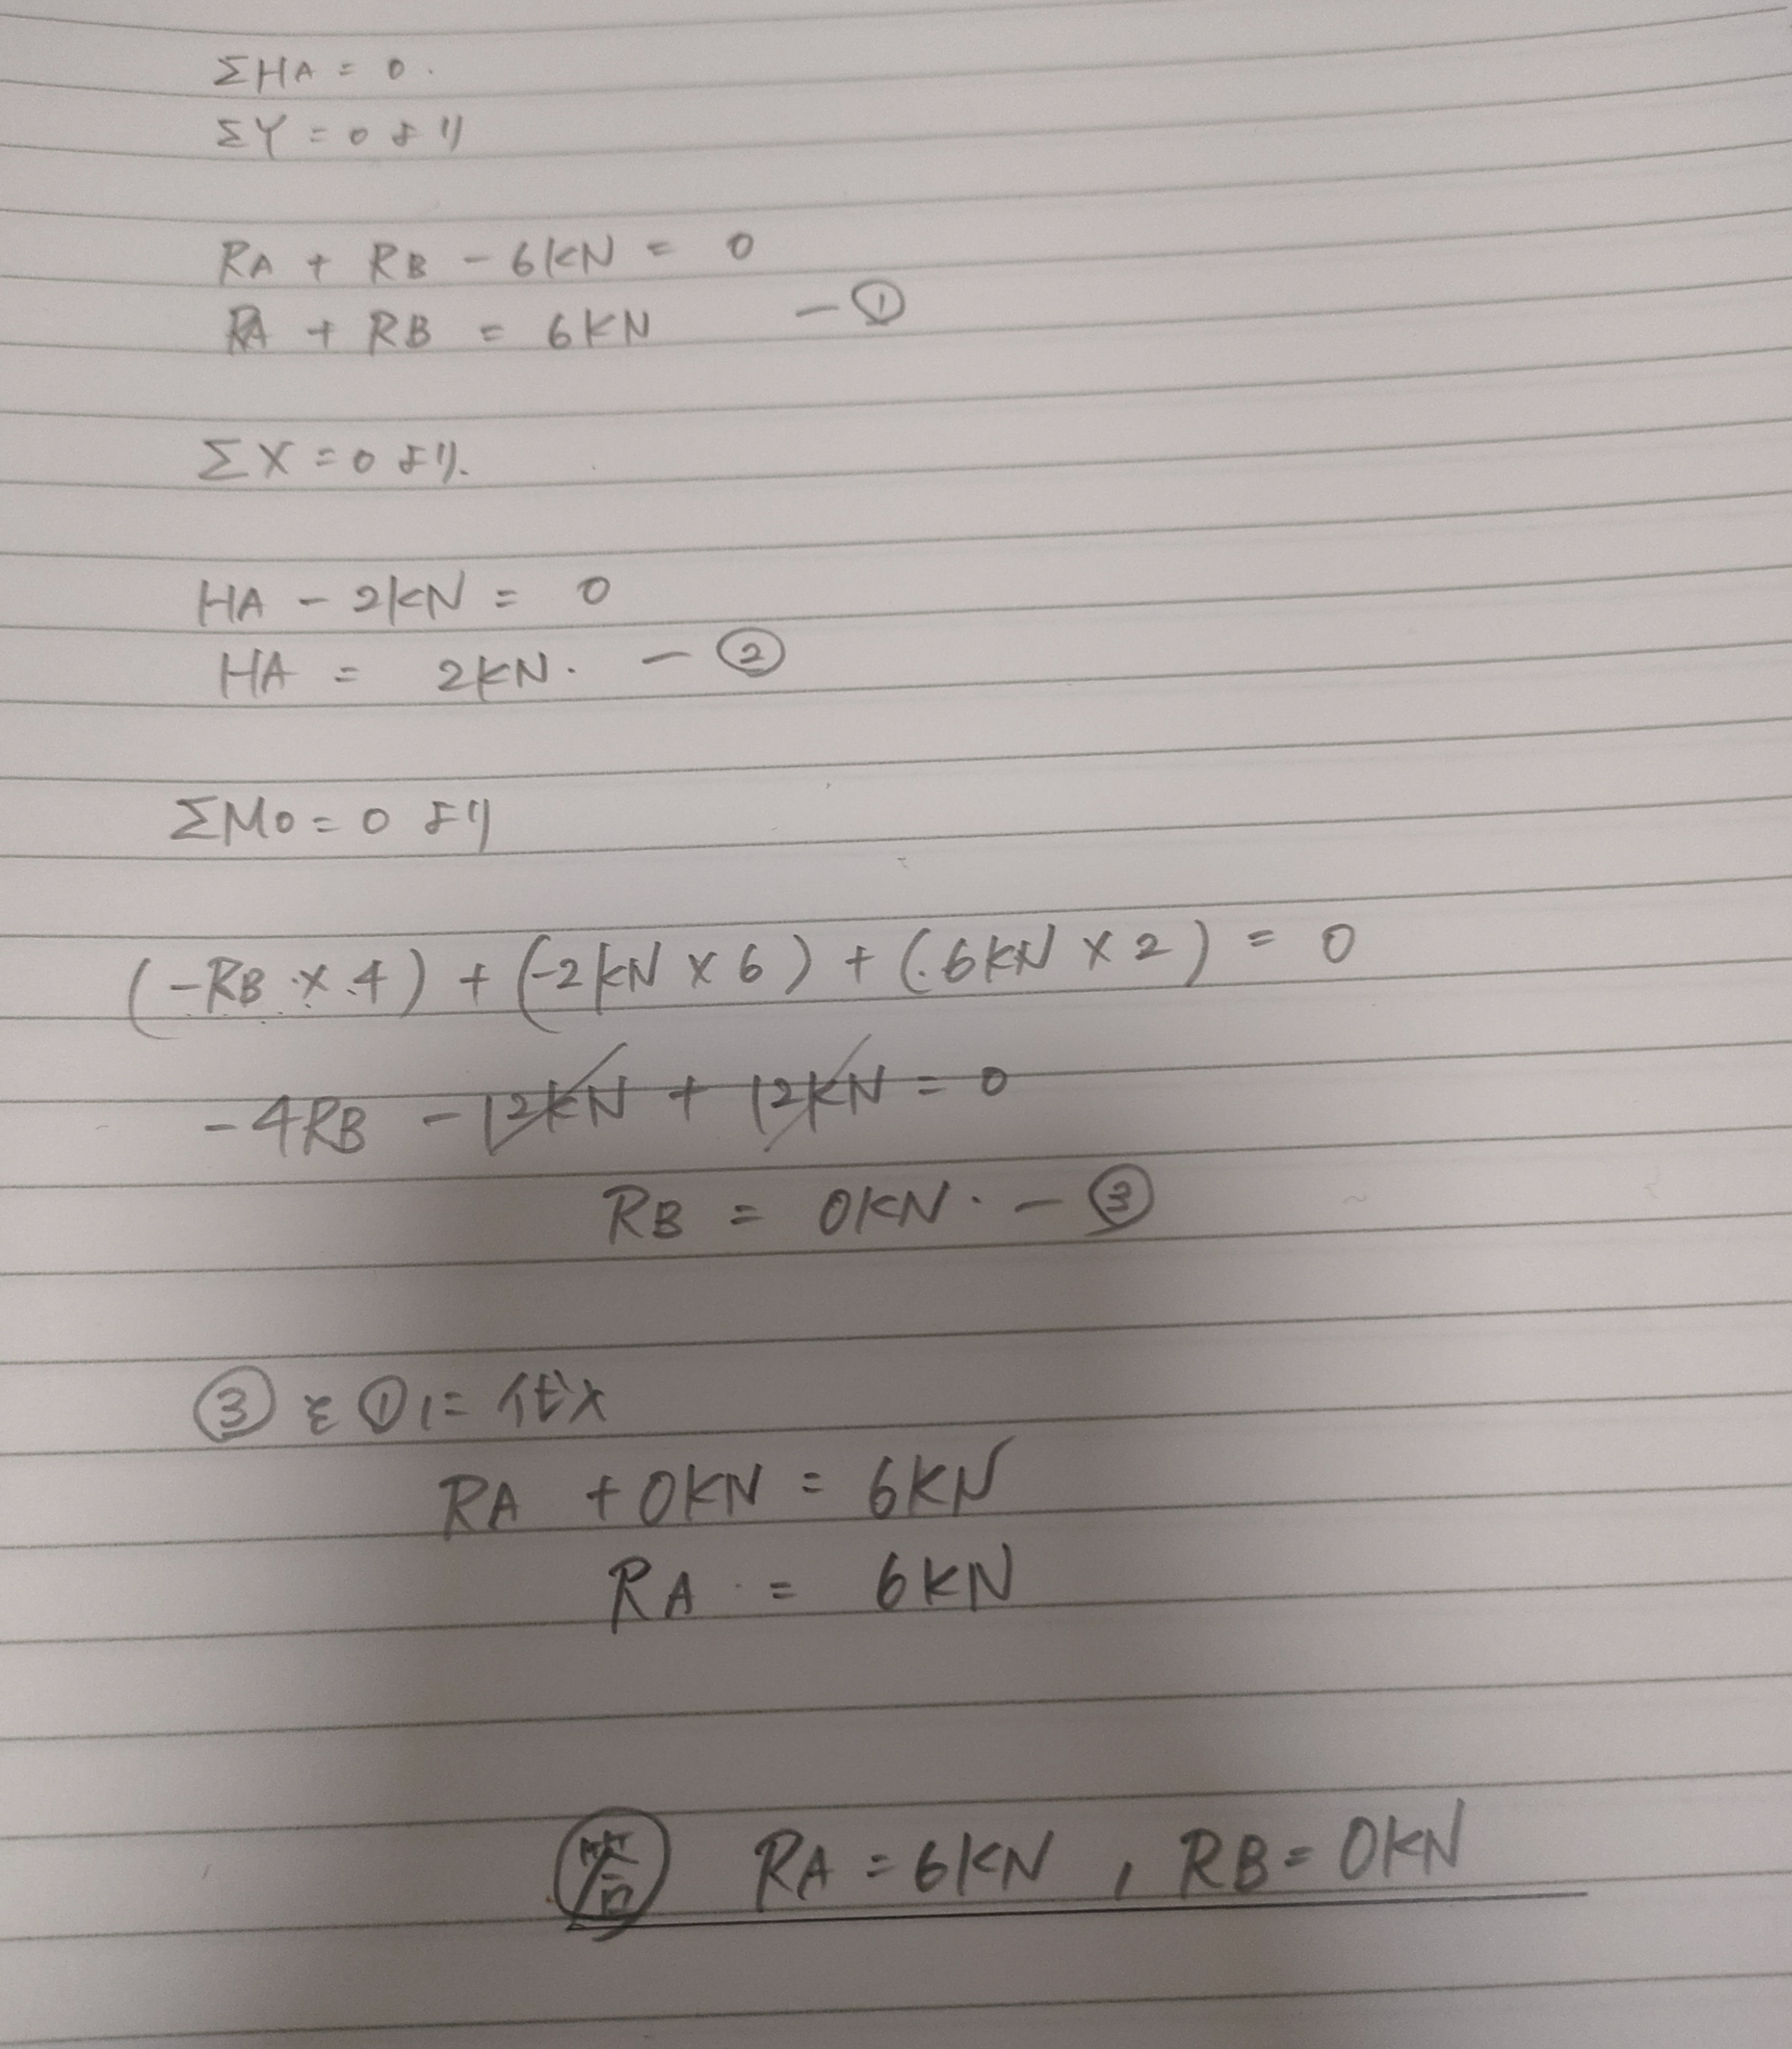 ΣHA = 0.
ΣY = 0 より
RA + RB - 6KN = 0
RA + RB = 6KN - ①
ΣX = 0 より.
HA - 2KN = 0
HA = 2KN. - ②
ΣMo = 0 より
(-RB × 4) + (-2KN × 6) + (6KN × 2) = 0
-4RB - 12KN + 12KN = 0
RB = 0KN. - ③
③を①に代入
RA + 0KN = 6KN
RA = 6KN
答 RA = 6KN, RB = 0KN